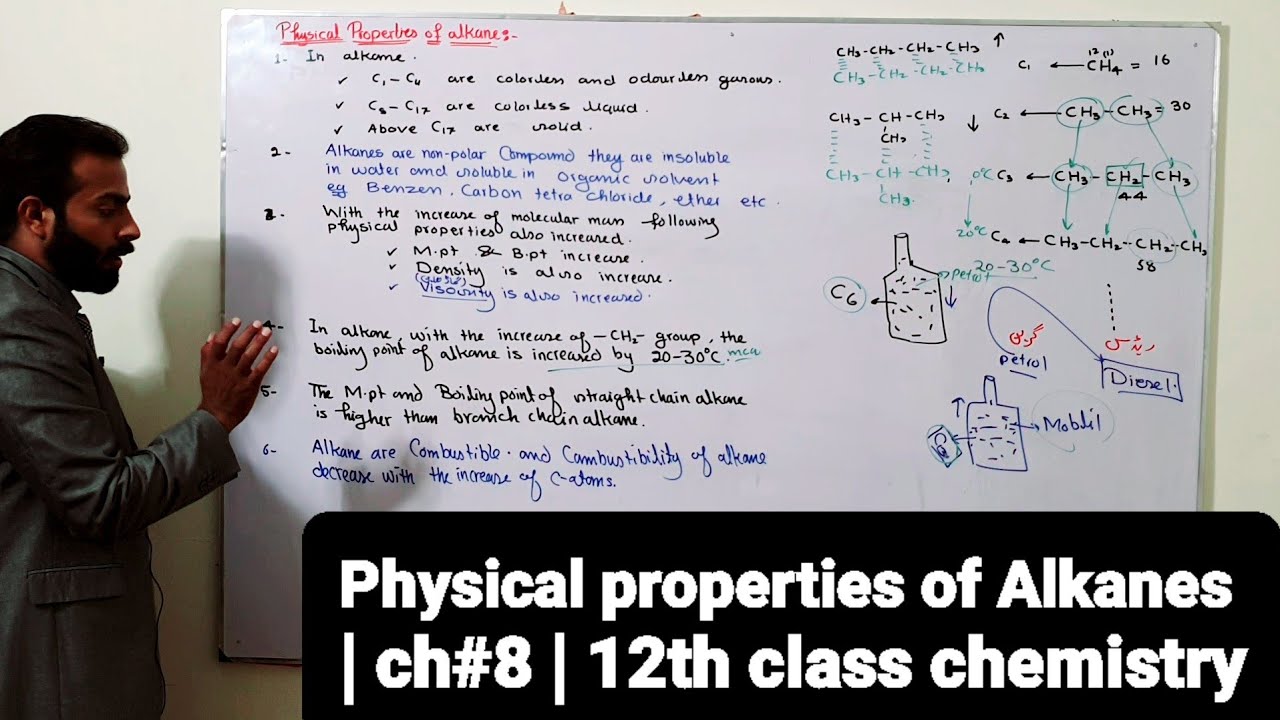 Physical Properties of alkane:-
1- In alkane.
✓ C₁-C₄ are colorless and odourless gasous.
✓ C₅-C₁₇ are colorless liquid.
✓ Above C₁₇ are solid.
2- Alkanes are non-polar Compound they are insoluble
in water and soluble in organic solvent
eg Benzen, Carbon tetra chloride, ether etc.
3- With the increase of molecular mass following
physical properties also increased.
✓ M.pt & B.pt increase.
✓ Density is also increase.
✓ Viscosity is also increased.
4- In alkane, with the increase of -CH₂- group, the
boiling point of alkane is increased by 20-30°C.
5- The M.pt and Boiling point of straight chain alkane
is higher than branch chain alkane.
6- Alkane are Combustible. and Cambustibility of alkane
decrease with the increase of C-atoms.
CH₃-CH₂-CH₂-CH₃ ↑
CH₃-CH₂-CH₂-CH₃
CH₃-CH-CH₃ ↓
CH₃
CH₃-CH-CH₃
CH₃
12 (1)
C₁ ← CH₄ = 16
C₂ ← CH₃-CH₃ = 30
0°C C₃ ← CH₃-CH₂-CH₃
44
20°C C₄ ← CH₃-CH₂-CH₂-CH₃
58
20-30°C
petrol
C₆
petrol
ریڈس
Diesel.
Mobil
Physical properties of Alkanes
| ch#8 | 12th class chemistry